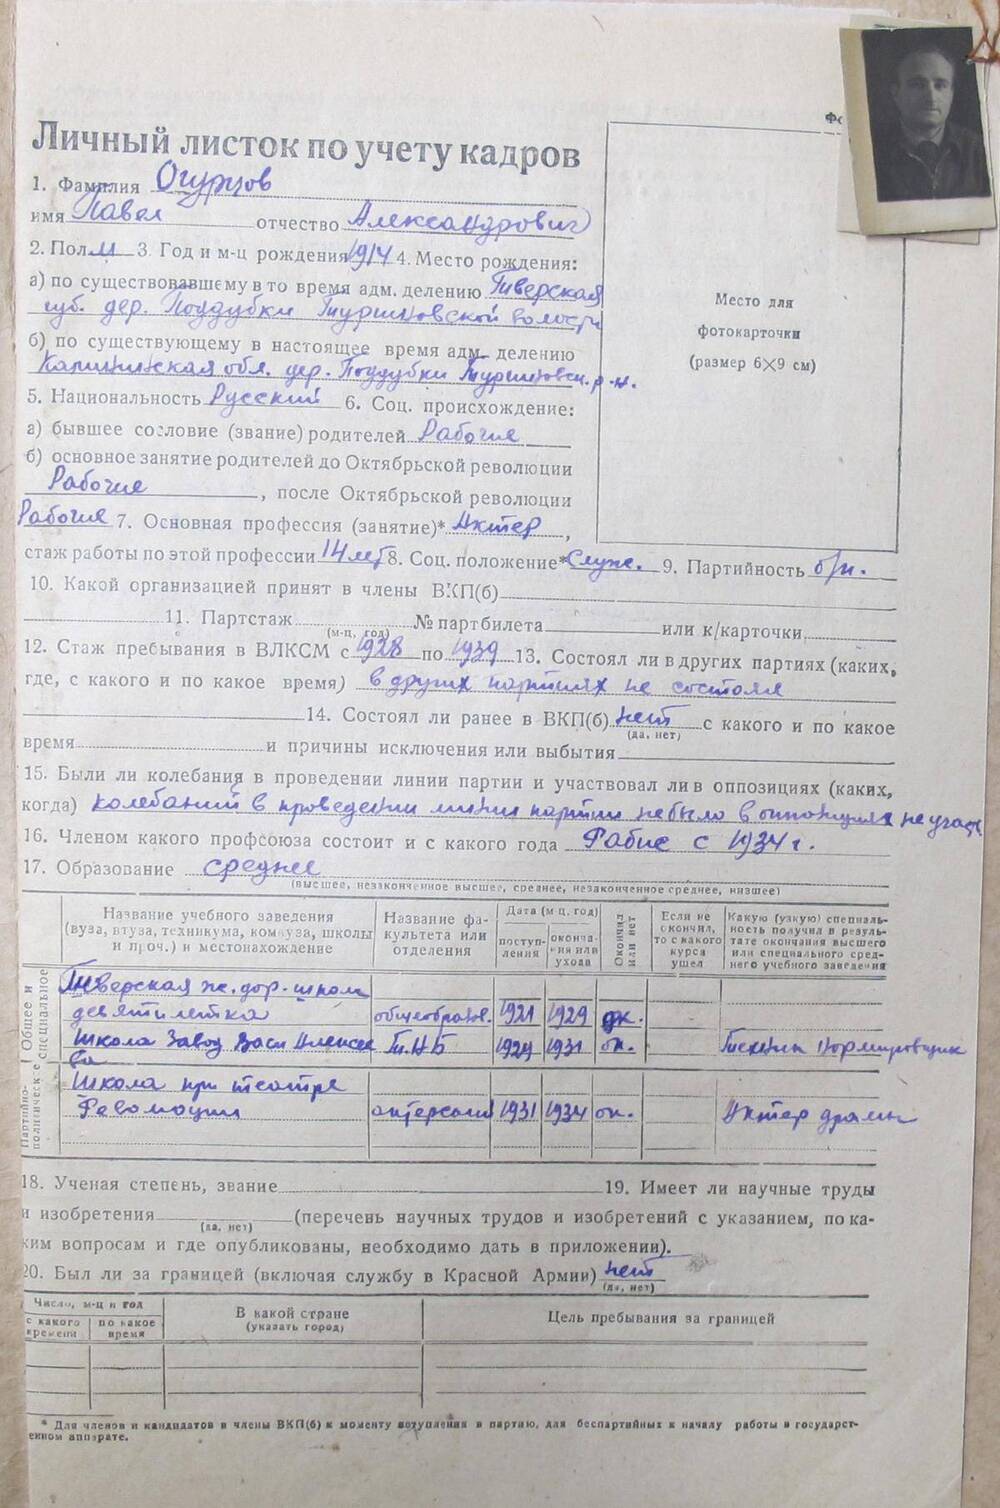 Фо
Личный листок по учету кадров
1. Фамилия Огурцов
имя Павел отчество Александрович
2. Пол М 3. Год и м-ц рождения 1914 4. Место рождения:
а) по существовавшему в то время адм. делению Тверская
губ. дер. Поддубки Тургиновской волости
б) по существующему в настоящее время адм. делению
Калининская обл. дер. Поддубки Тургиновск. р-н.
5. Национальность Русский 6. Соц. происхождение:
а) бывшее сословие (звание) родителей Рабочие
б) основное занятие родителей до Октябрьской революции
Рабочие, после Октябрьской революции
Рабочие 7. Основная профессия (занятие)* Актер,
стаж работы по этой профессии 14 лет 8. Соц. положение* Служ. 9. Партийность б/п.
10. Какой организацией принят в члены ВКП(б)
11. Партстаж (м-ц, год) № партбилета или к/карточки
12. Стаж пребывания в ВЛКСМ с 1928 по 1939 13. Состоял ли в других партиях (каких,
где, с какого и по какое время) в других партиях не состоял
14. Состоял ли ранее в ВКП(б) нет (да, нет) с какого и по какое
время и причины исключения или выбытия
15. Были ли колебания в проведении линии партии и участвовал ли в оппозициях (каких,
когда) колебаний в проведении линии партии не было в оппозициях не участ.
16. Членом какого профсоюза состоит и с какого года Рабис с 1934 г.
17. Образование среднее
(высшее, незаконченное высшее, среднее, незаконченное среднее, низшее)
Название учебного заведения (вуза, втуза, техникума, комвуза, школы и проч.) и местонахождение
Название факультета или отделения
Дата (м-ц, год)
поступления
окончания или ухода
Окончил или нет
Если не окончил, то с какого курса ушел
Какую (узкую) специальность получил в результате окончания высшего или специального среднего учебного заведения
Общее и специальное
Партийно-политическое
Тверская ж. дор. школа
девятилетка общеобразов. 1921 1929 ок.
Школа Завод Васи Алексее
ва Т.Н.Б 1929 1931 ок. Техник нормировщик
Школа при театре
Революции актерский 1931 1934 ок. Актер драмы
18. Ученая степень, звание 19. Имеет ли научные труды
и изобретения (да, нет) (перечень научных трудов и изобретений с указанием, по ка-
ким вопросам и где опубликованы, необходимо дать в приложении).
20. Был ли за границей (включая службу в Красной Армии) нет
(да, нет)
Число, м-ц и год
с какого времени
по какое время
В какой стране
(указать город)
Цель пребывания за границей
* Для членов и кандидатов в члены ВКП(б) к моменту вступления в партию, для беспартийных к началу работы в государст-
енном аппарате.
Место для
фотокарточки
(размер 6×9 см)